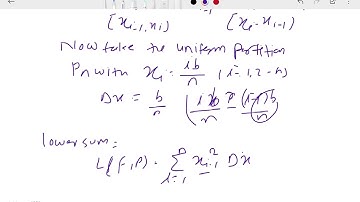 [xi-1, xi] [xi - xi-1]
Now take the uniform partition
Pn with xi = ib/n, (i=1,2-n)
Dx = b/n (ib/n - (i-1)b/n)
lower sum:
L(f,P) = n∑i=1 xi-1² Dx